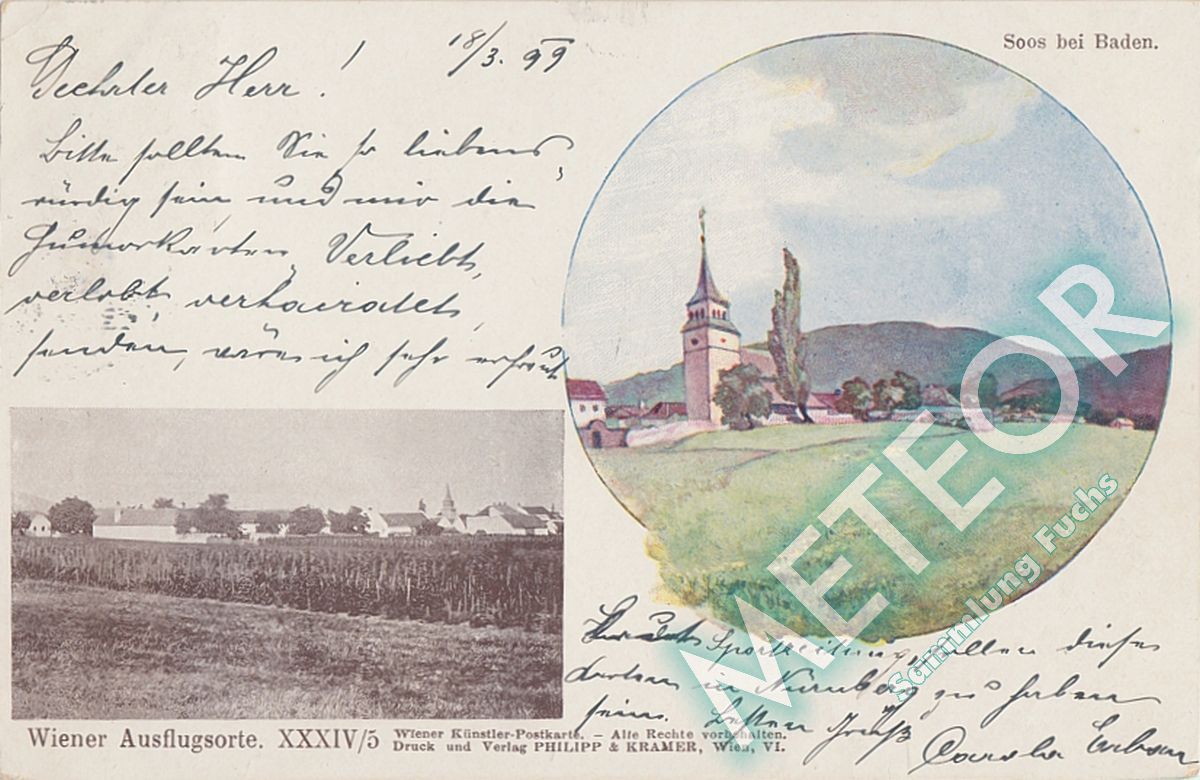 18/3. 99
Soos bei Baden.
Geehrter Herr!
Bitte sollten Sie so liebens
würdig sein und mir die
Humorkarten Verliebt,
verlobt, verheiratet
senden, wäre ich sehr erfreut
Sportzeitung, sollen diese
Karten in Nürnberg zu haben
sein. Besten Gruß
Carola
Wiener Ausflugsorte. XXXIV/5
Wiener Künstler-Postkarte. – Alle Rechte vorbehalten.
Druck und Verlag PHILIPP & KRAMER, Wien, VI.
METEOR
Sammlung Fuchs